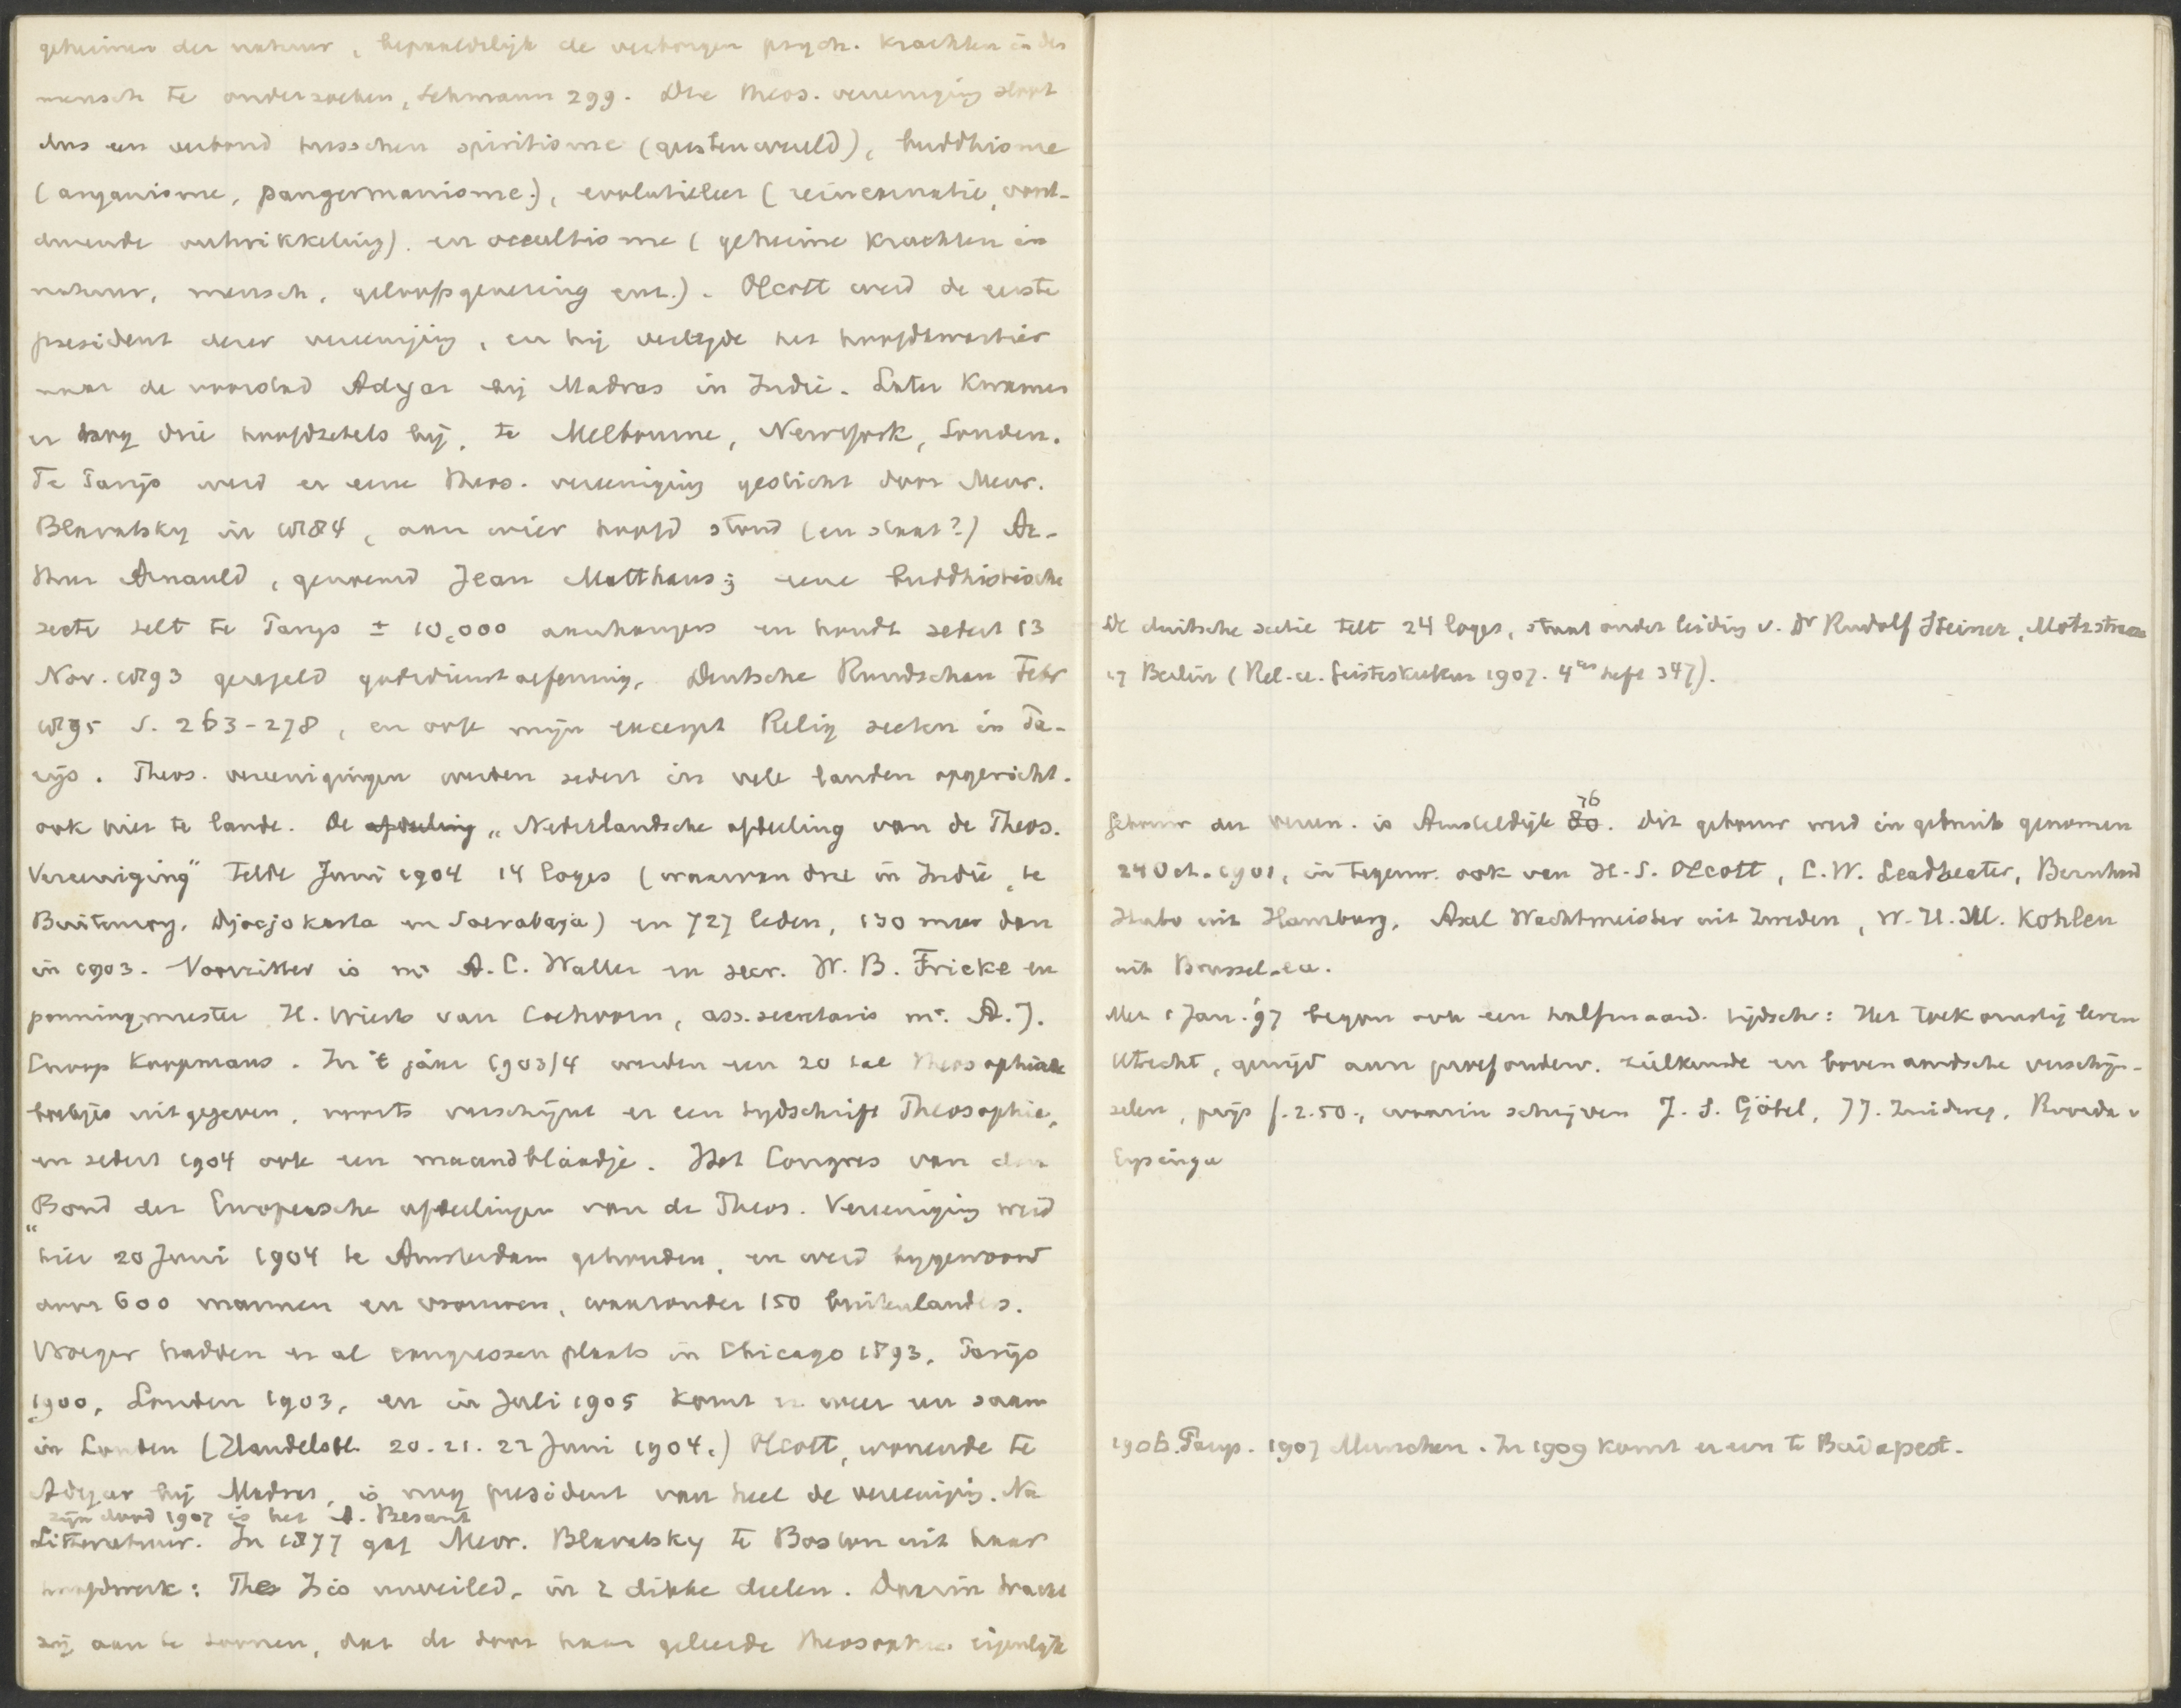 geheimen der natuur, bepaaldelijk de verborgen psych. krachten in den
mensch te onderzoeken, Lehmann 299. Die theos. vereeniging sloot
dus een verbond tusschen spiritisme (geestenwereld), buddhisme
(aryanisme, pangermanisme), evolutieleer (reincarnatie, voort-
durende ontwikkeling) en occultisme (geheime krachten in
natuur, mensch, geloofsgenezing enz.). Olcott werd de eerste
president dezer vereeniging, en hij verlegde het hoofdkwartier
naar de voorstad Adyar bij Madras in Indië. Later kwamen
er nog drie hoofdzetels bij, te Melbourne, Newyork, Londen.
Te Parijs werd er eene theos. vereeniging gesticht door Mevr.
Blavatsky in 1884, aan wier hoofd stond (en staat?) Ar-
thur Arnauld, genaamd Jean Matthaus; eene buddhistische
secte telt te Parijs ± 10,000 aanhangers en houdt sedert 13
Nov. 1893 geregeld godsdienstoefening, Deutsche Rundschau Febr
1895 S. 263-278, en ook mijn excerpt Relig secten in Pa-
rijs. Theos. vereenigingen werden sedert in vele landen opgericht.
ook hier te lande. De afdeeling „Nederlandsche afdeeling van de Theos.
Vereeniging" telde Juni 1904 14 loges (waarvan drie in Indië, te
Buitenzorg, Djocjokarta en Soerabaja) en 727 leden, 130 meer dan
in 1903. Voorzitter is mr A. C. Waller en secr. W. B. Fricke en
penningmeester H. Wierts van Coehoorn, ass. secretaris mr. A. J.
Cnoop Koopmans. In 't jaar 1903/4 werden een 20 tal theosophische
boekjes uitgegeven, voorts verschijnt er een tydschrift Theosophie,
en sedert 1904 ook een maandblaadje. Het Congres van den
"Bond der Europeesche afdeelingen van de Theos. Vereeniging werd
hier 20 Juni 1904 te Amsterdam gehouden, en werd bygewoond
door 600 mannen en vrouwen, waaronder 150 buitenlanders.
Vroeger hadden er al congressen plaats in Chicago 1893, Parijs
1900, Londen 1903, en in Juli 1905 komt er weer een saam
in Londen (Handelsbl. 20. 21. 22 Juni 1904.) Olcott, wonende te
Adyar bij Madras, is nog president van heel de vereeniging. Na
zijn dood 1907 is het A. Besant
Litteratuur. In 1877 gaf Mevr. Blavatsky te Boston uit haar
hoofdwerk: The Isis unveiled, in 2 dikke deelen. Daarin tracht
zij aan te toonen, dat de door haar geleerde theosophie eigenlijk
De duitsche sectie telt 24 loges, staat onder leiding v. Dr Rudolf Steiner, Motzstrasse
17 Berlin (Rel. u. Geisteskultur 1907. 4tes heft 347).
Gebouw der vereen. is Amsteldijk 80 76. Dit gebouw werd in gebruik genomen
24 Oct. 1901, in tegenw. ook van H. S. Olcott, C. W. Leadbeater, Bernhard
Hubo uit Hamburg, Axel Wachtmeister uit Zweden, W. H. M. Kohlen
uit Brussel. ea.
Met 1 Jan. 97 begon ook een halfmaand. tijdschr: Het toekomstig leven
Utrecht, gewijd aan proefonderv. zielkunde en bovenaardsche verschijn-
selen, prijs f. 2.50., waarin schrijven J. S. Göbel, J J. Zuidweg, Roorda v
Eysinga
1906. Parijs. 1907 Munchen. In 1909 komt er een te Budapest.